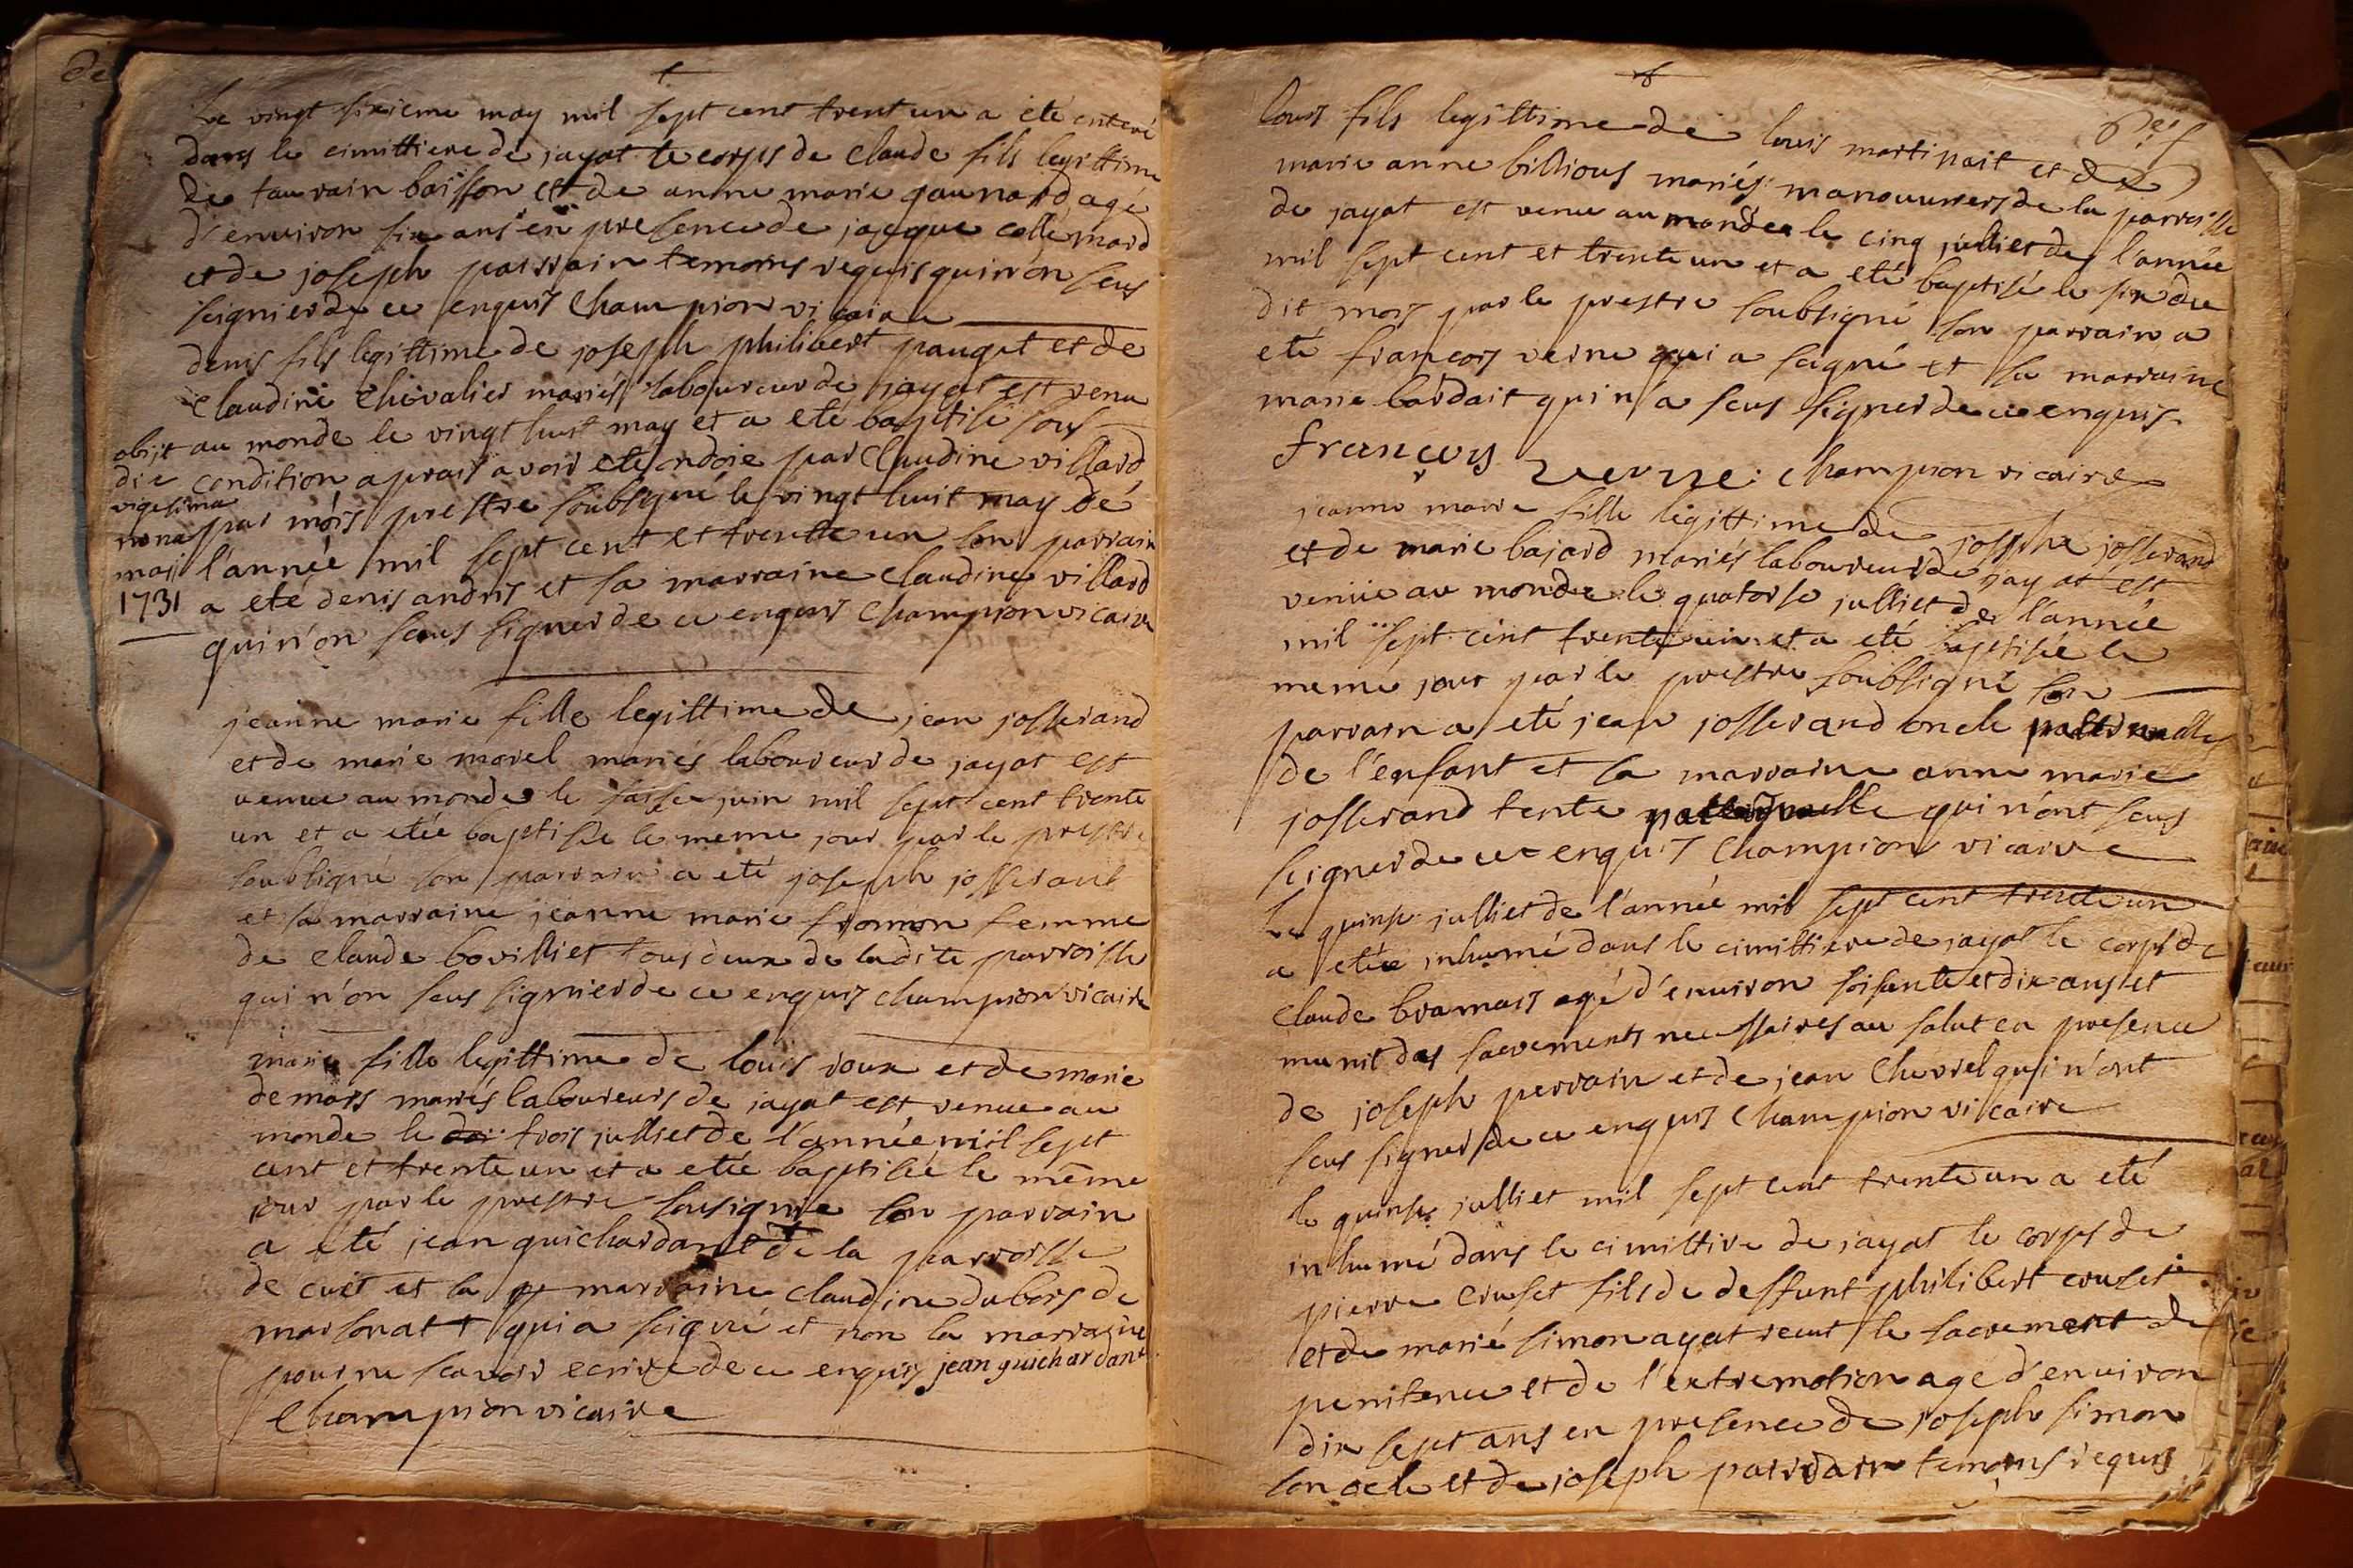 Le vingt sixieme may mil sept cent trent un a eté enteré
dans le cimittiere de jayat le corps de Claude fils legittime
de taurain baisson et de anne marie gaunard agé
d'environ six ans en presence de jacque collemard
et de joseph parrain temoins requis qui n'on seus
seignier de ce enquis Champion vicaire
denis fils legittime de joseph philibert pauget et de
Claudine Chevalier mariés laboureur de jayat est venu
au monde le vingt huit may et a eté baptisé sous
condition aprais avoir eté ondoie par Claudine villard
par mois prestre soubsigné le vingt huit may de
l'année mil sept cent et trente un son parrain
a eté denis andris et sa marraine Claudine villard
qui n'on seus signer de ce enquis Champion vicaire
obijt
die
vigesima
nona
maij
1731
jeanne marie fille legittime de jean josserand
et de marie morel mariés laboureur de jayat est
venue au monde le saise juin mil sept cent trente
un et a etée baptisée le meme jour par le prestre
soubsigné son parrain a eté joseph josserand
et sa marraine jeanne marie fromon femme
de Claude bovilliet tous deux de ladite parroisse
qui n'on seus signier de ce enquis champion vicaire
marie fille legittime de louis roux et de marie
demars mariés laboureurs de jayat est venue au
monde le trois julliet de l'année mil sept
cent et trente un et a etée baptisée le même
jour par le prestre sousignie son parrain
a eté jean guichardant de la parroisse
de cuet et la marraine Claudine dubois de
marsonatt qui a seigné et non la marraine
pour ne scavoir ecrire de ce enquis jean guichardant
Champion vicaire
louis fils legittime de louis martinait et de
marie anne billious mariés manouvriers de la parroisse
de jayat est venu au monde le cinq julliet de l'année
mil sept cent et trente un et a eté baptisé le six du
dit mois par le prestre soubsigné son parrain a
eté francois verne qui a seigné et sa marraine
marie bardait qui n'a seus signer de ce enquis
françoys verne: Champion vicaire
jeanne marie fille legittime de josephe josserand
et de marie bajard mariés laboureur de jayat est
venüe au monde le quatorse julliet de l'année
mil sept cent trente un et a eté baptisée le
meme jour par le prestre soubsigné son
parrain a eté jean josserand oncle paternelle
de l'enfant et sa marraine anne marie
josserand tente paternelle qui n'ont seus
seigner de ce enquis Champion vicaire
Le quinse julliet de l'année mil sept cent trente un
a etée inhumé dans le cimittiere de jayat le corps de
Claude bramais agé d'environ soisante et dix ans et
munit des sacrements necessaires au salut en presence
de joseph perrain et de jean Chevrel qui n'ont
seus signer de ce enquis Champion vicaire
le quinse julliet mil sept cent trente un a eté
inhumé dans le cimittire de jayat le corps de
pierre cruset fils de deffunt philibert cruset
et de marie simon ayat recut le sacrement de
penitence et de l'extremotion age d'environ
dix sept ans en presence de joseph simon
son ocle et de joseph parrain temoins requis